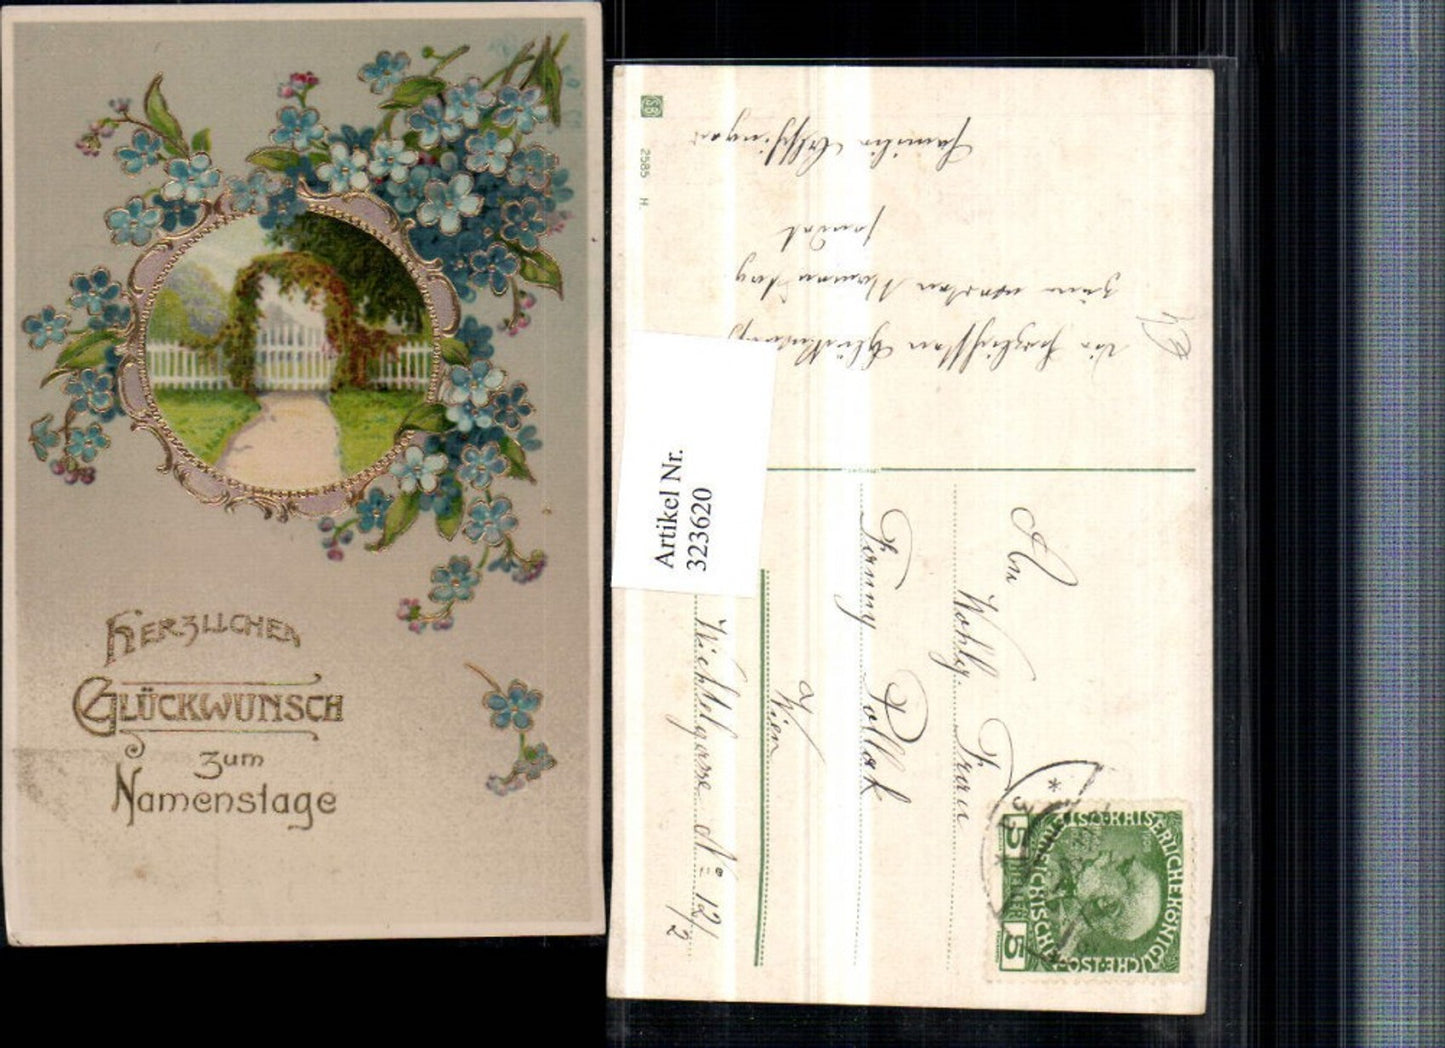 Herzlichen
Glückwunsch
zum
Namenstage
2585 H.
Die herzlichsten Glückwünsche
zum werten Namenstag
sendet
Familie
Artikel Nr.
323620
An
Wohlg. Frau
Fanny Pollak
Wien
Wichtelgasse No 12/2
KAISERLICHE KÖNIGLICHE
5 HELLER 5